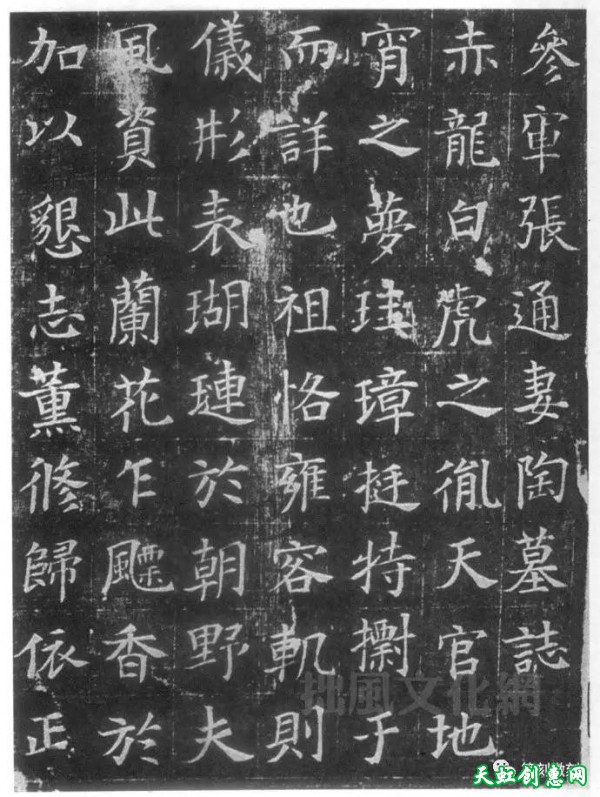 參軍張通妻陶墓誌
赤龍白虎之胤天官地
宵之夢珪璋挺特于
而詳也祖恪雍容軌則
儀形表瑚璉於朝野夫
風資此蘭花乍飃香於
加以懇志薰修歸依正
拙風文化網
天虹创惠网